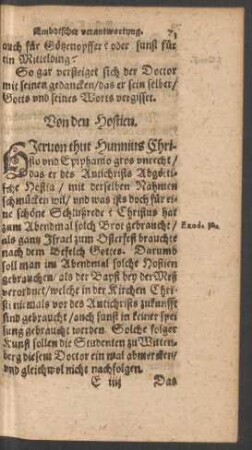 Embdischer verantwortung. 73
auch für Götzenopffer? oder sunst für
ein Mittelding?
So gar versteiget sich der Doctor
mit seinen gedancken/das er sein selber/
Gotts vnd seines Worts vergisset.
Von den Hostien.
HJeruon thut Hunnius Chri-
sto vnd Epiphanio gros vnrecht/
Das er des Antichrists Abgötti-
sche Hostia/ mit derselben Nahmen
schmücken wil/ vnd was ists doch für ei-
ne schöne Schlußrede? Christus hat
zum Abendmal solch Brot gebraucht/
als gantz Israel zum Osterfest brauchte
nach dem Befelch Gottes. Darumb
soll man im Abendmal solche Hostien
gebrauchen/als der Bapst bey der Meß
verordnet/welche in der Kirchen Chri-
sti niemals vor des Antichrists zukunfft
sind gebraucht/auch sunst in keiner spei
sung gebraucht werden. Solche folger
Kunst sollen die Studenten zu Witten-
berg diesem Doctor ein mal abmercken/
vnd gleichwol nicht nachfolgen.
Exod.
E iiij Das